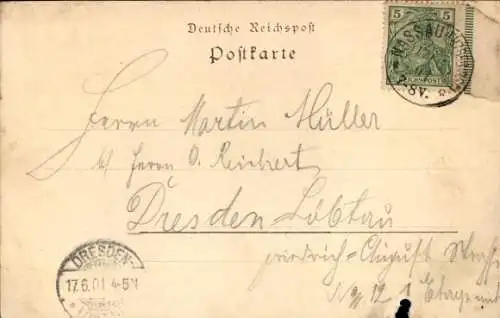 Deutsche Reichspost
Postkarte
5 5
NASSAU
2-8V.
REICHSPOST
Herrn Martin Müller
b/ Herrn O. Reichert
Dresden Löbtau
Friedrich-August Straße
12 1 Etage
DRESDEN-
17.6.01 4-5N